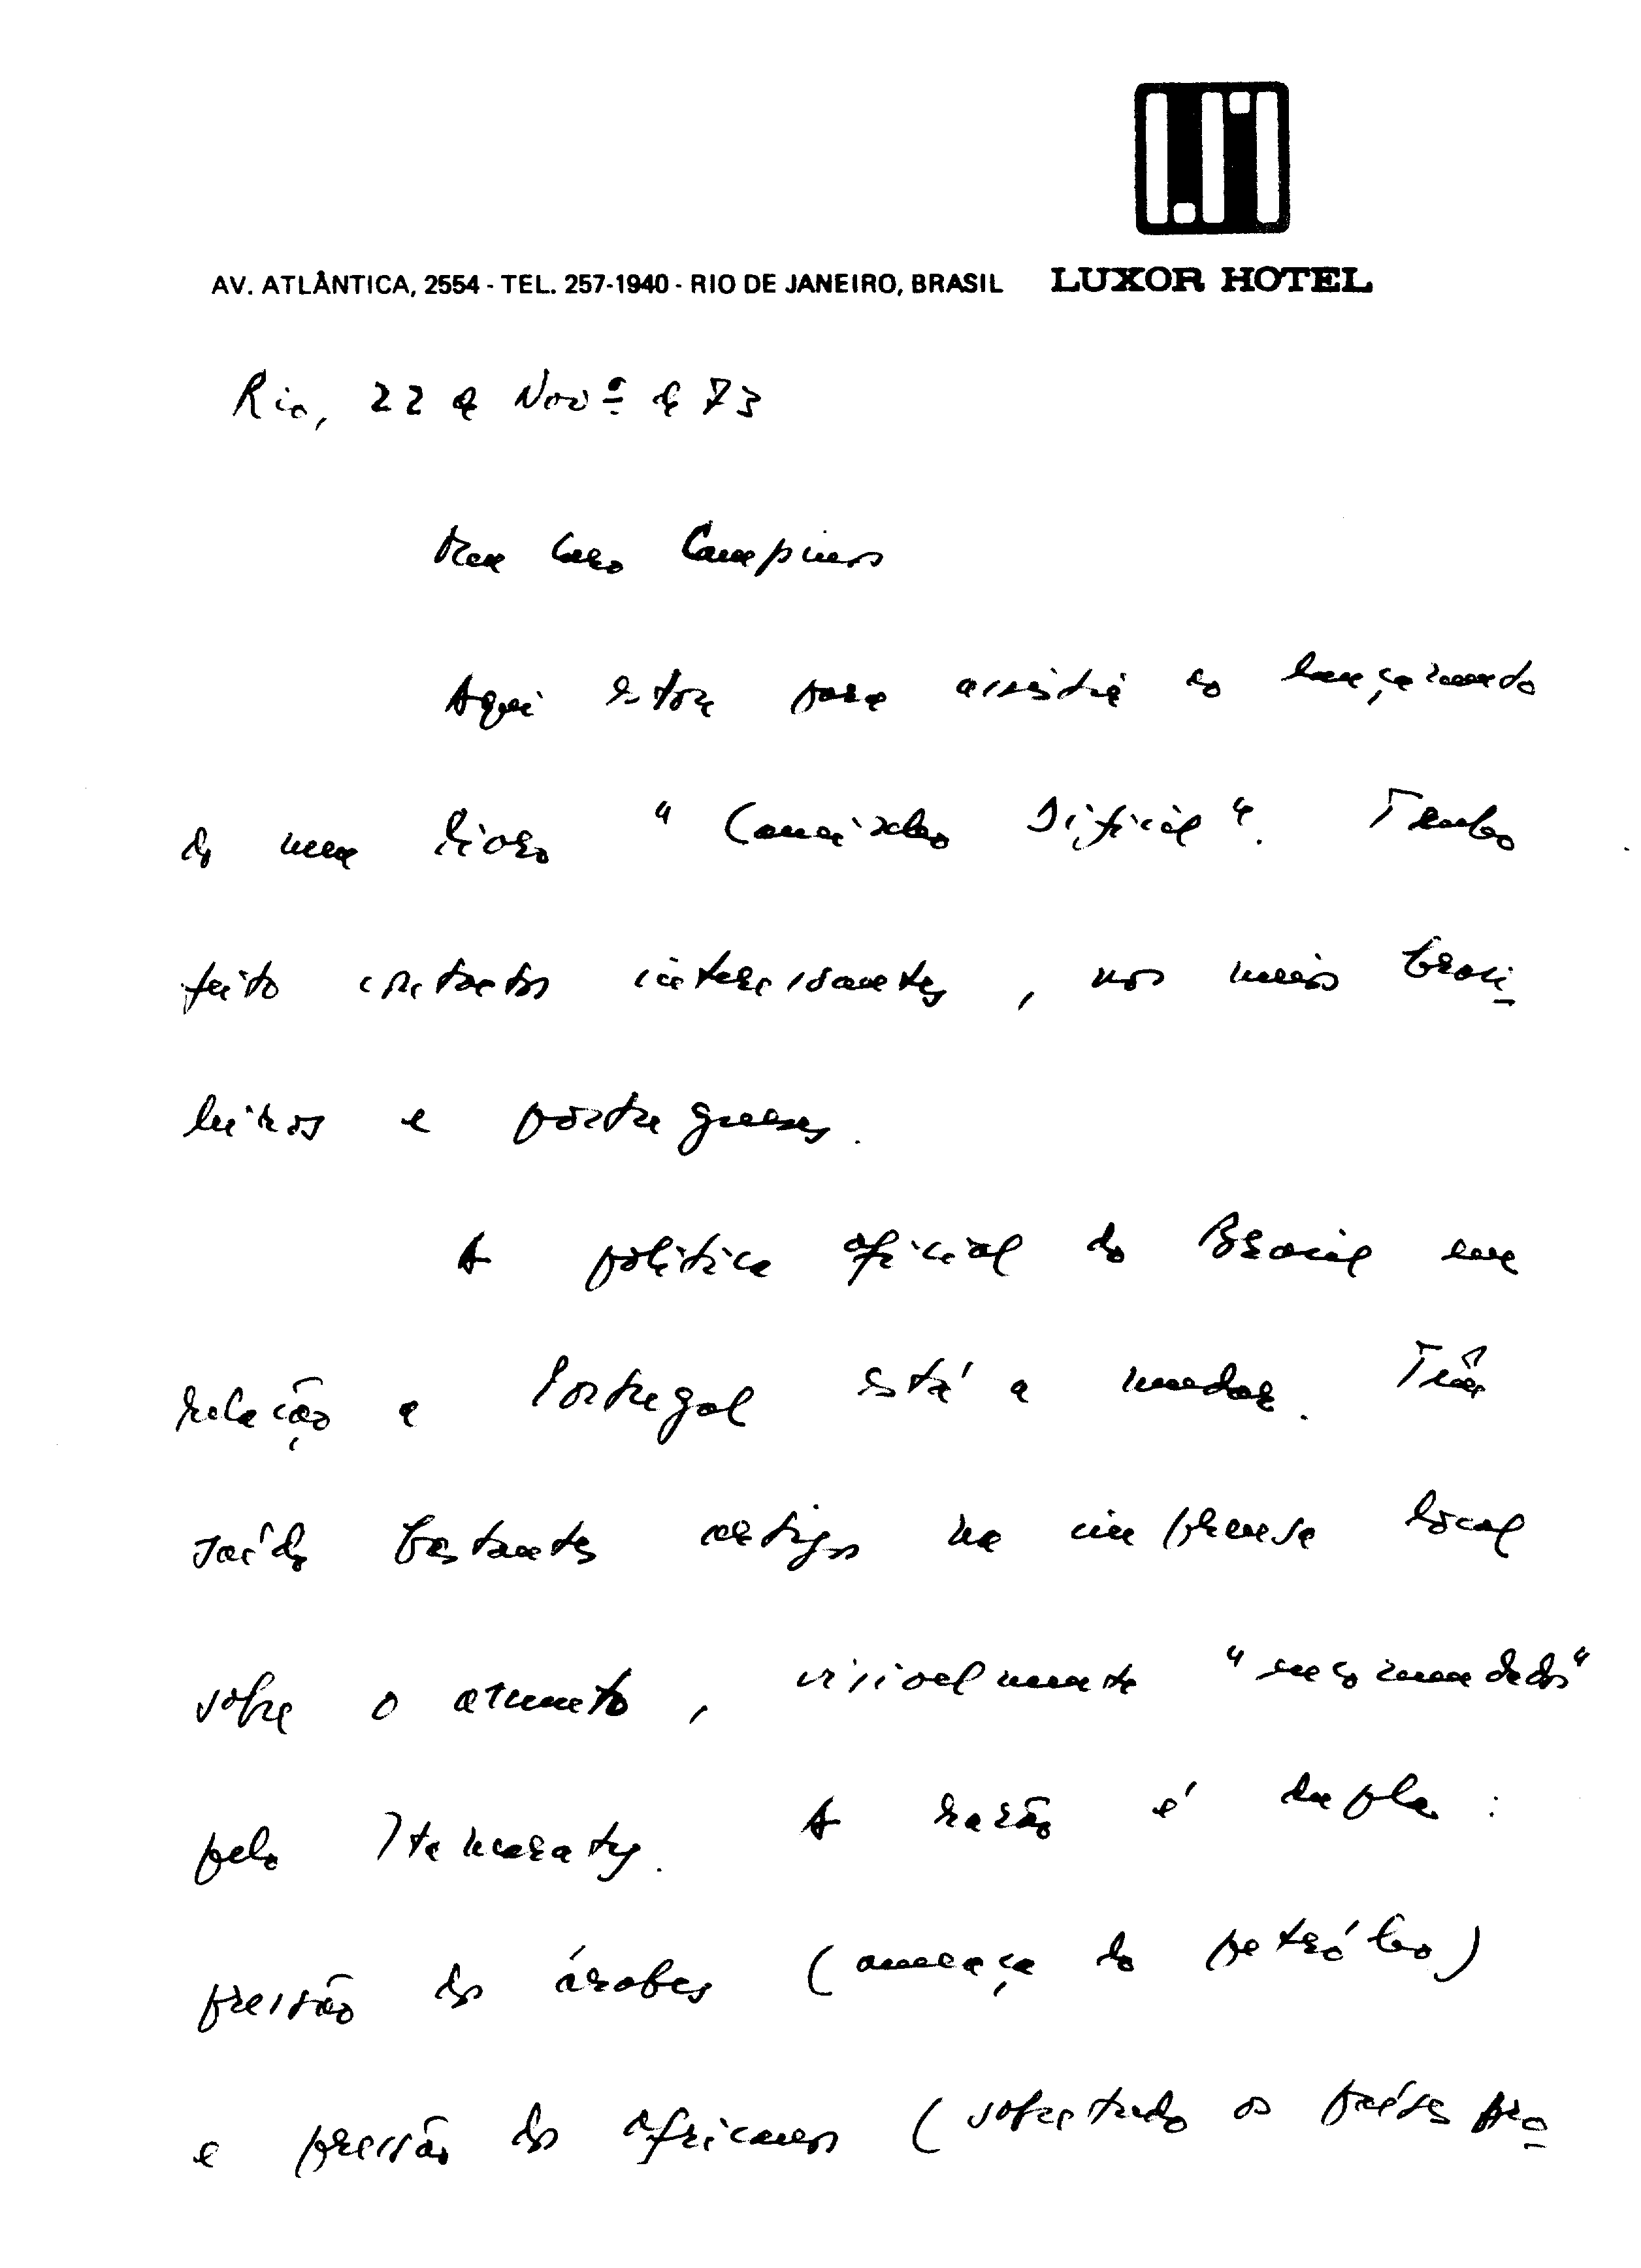 AV. ATLÂNTICA, 2554 - TEL. 257-1940 - RIO DE JANEIRO, BRASIL LUXOR HOTEL
Rio, 22 de Novº de 73
Meu caro Campinos
Aqui estou para assistir ao lançamento
do meu livro "Caminho Difícil". Tenho
feito contactos interessantes, nos meios brasi-
leiros e portugueses.
A política oficial do Brasil em
relação a Portugal está a mudar. Têm
saído bastantes artigos na imprensa local
sobre o assunto, visivelmente "encomendados"
pelo Itamaraty. A razão é dupla:
pressão dos árabes (ameaça do petróleo)
e pressão dos africanos (sobretudo os países pro-